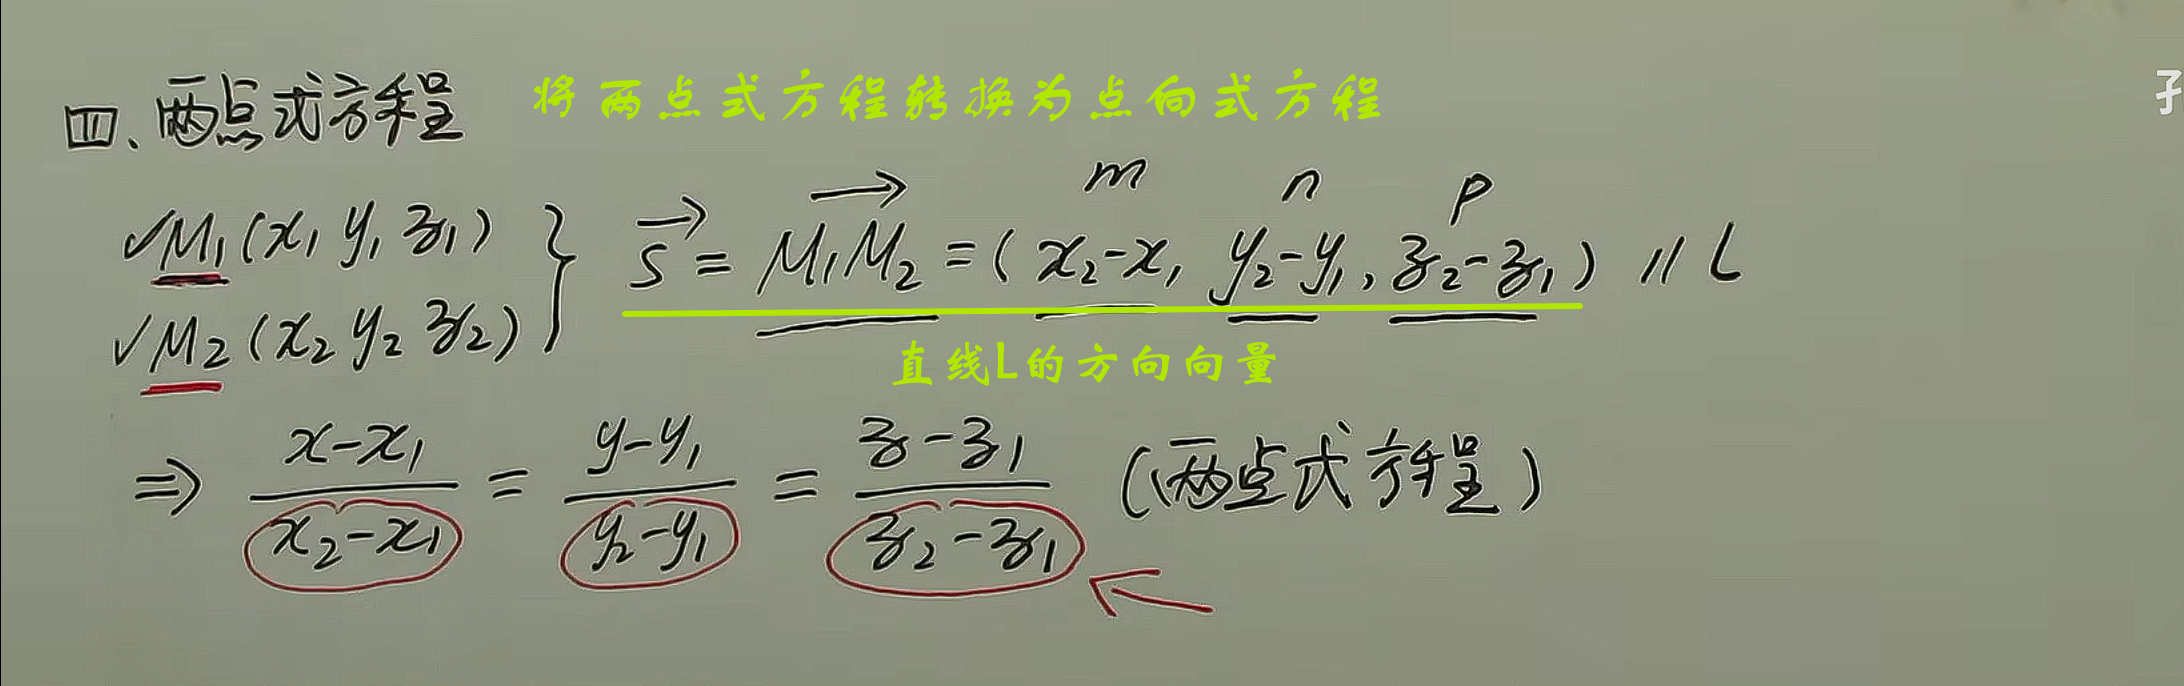 四、两点式方程 将两点式方程转换为点向式方程
孑
m n p
√M₁(x₁ y₁ z₁)
√M₂(x₂ y₂ z₂)
} s⃗ = M₁M₂⃗ = (x₂-x₁, y₂-y₁, z₂-z₁) // L
直线L的方向向量
⇒ (x-x₁)/(x₂-x₁) = (y-y₁)/(y₂-y₁) = (z-z₁)/(z₂-z₁) (两点式方程)